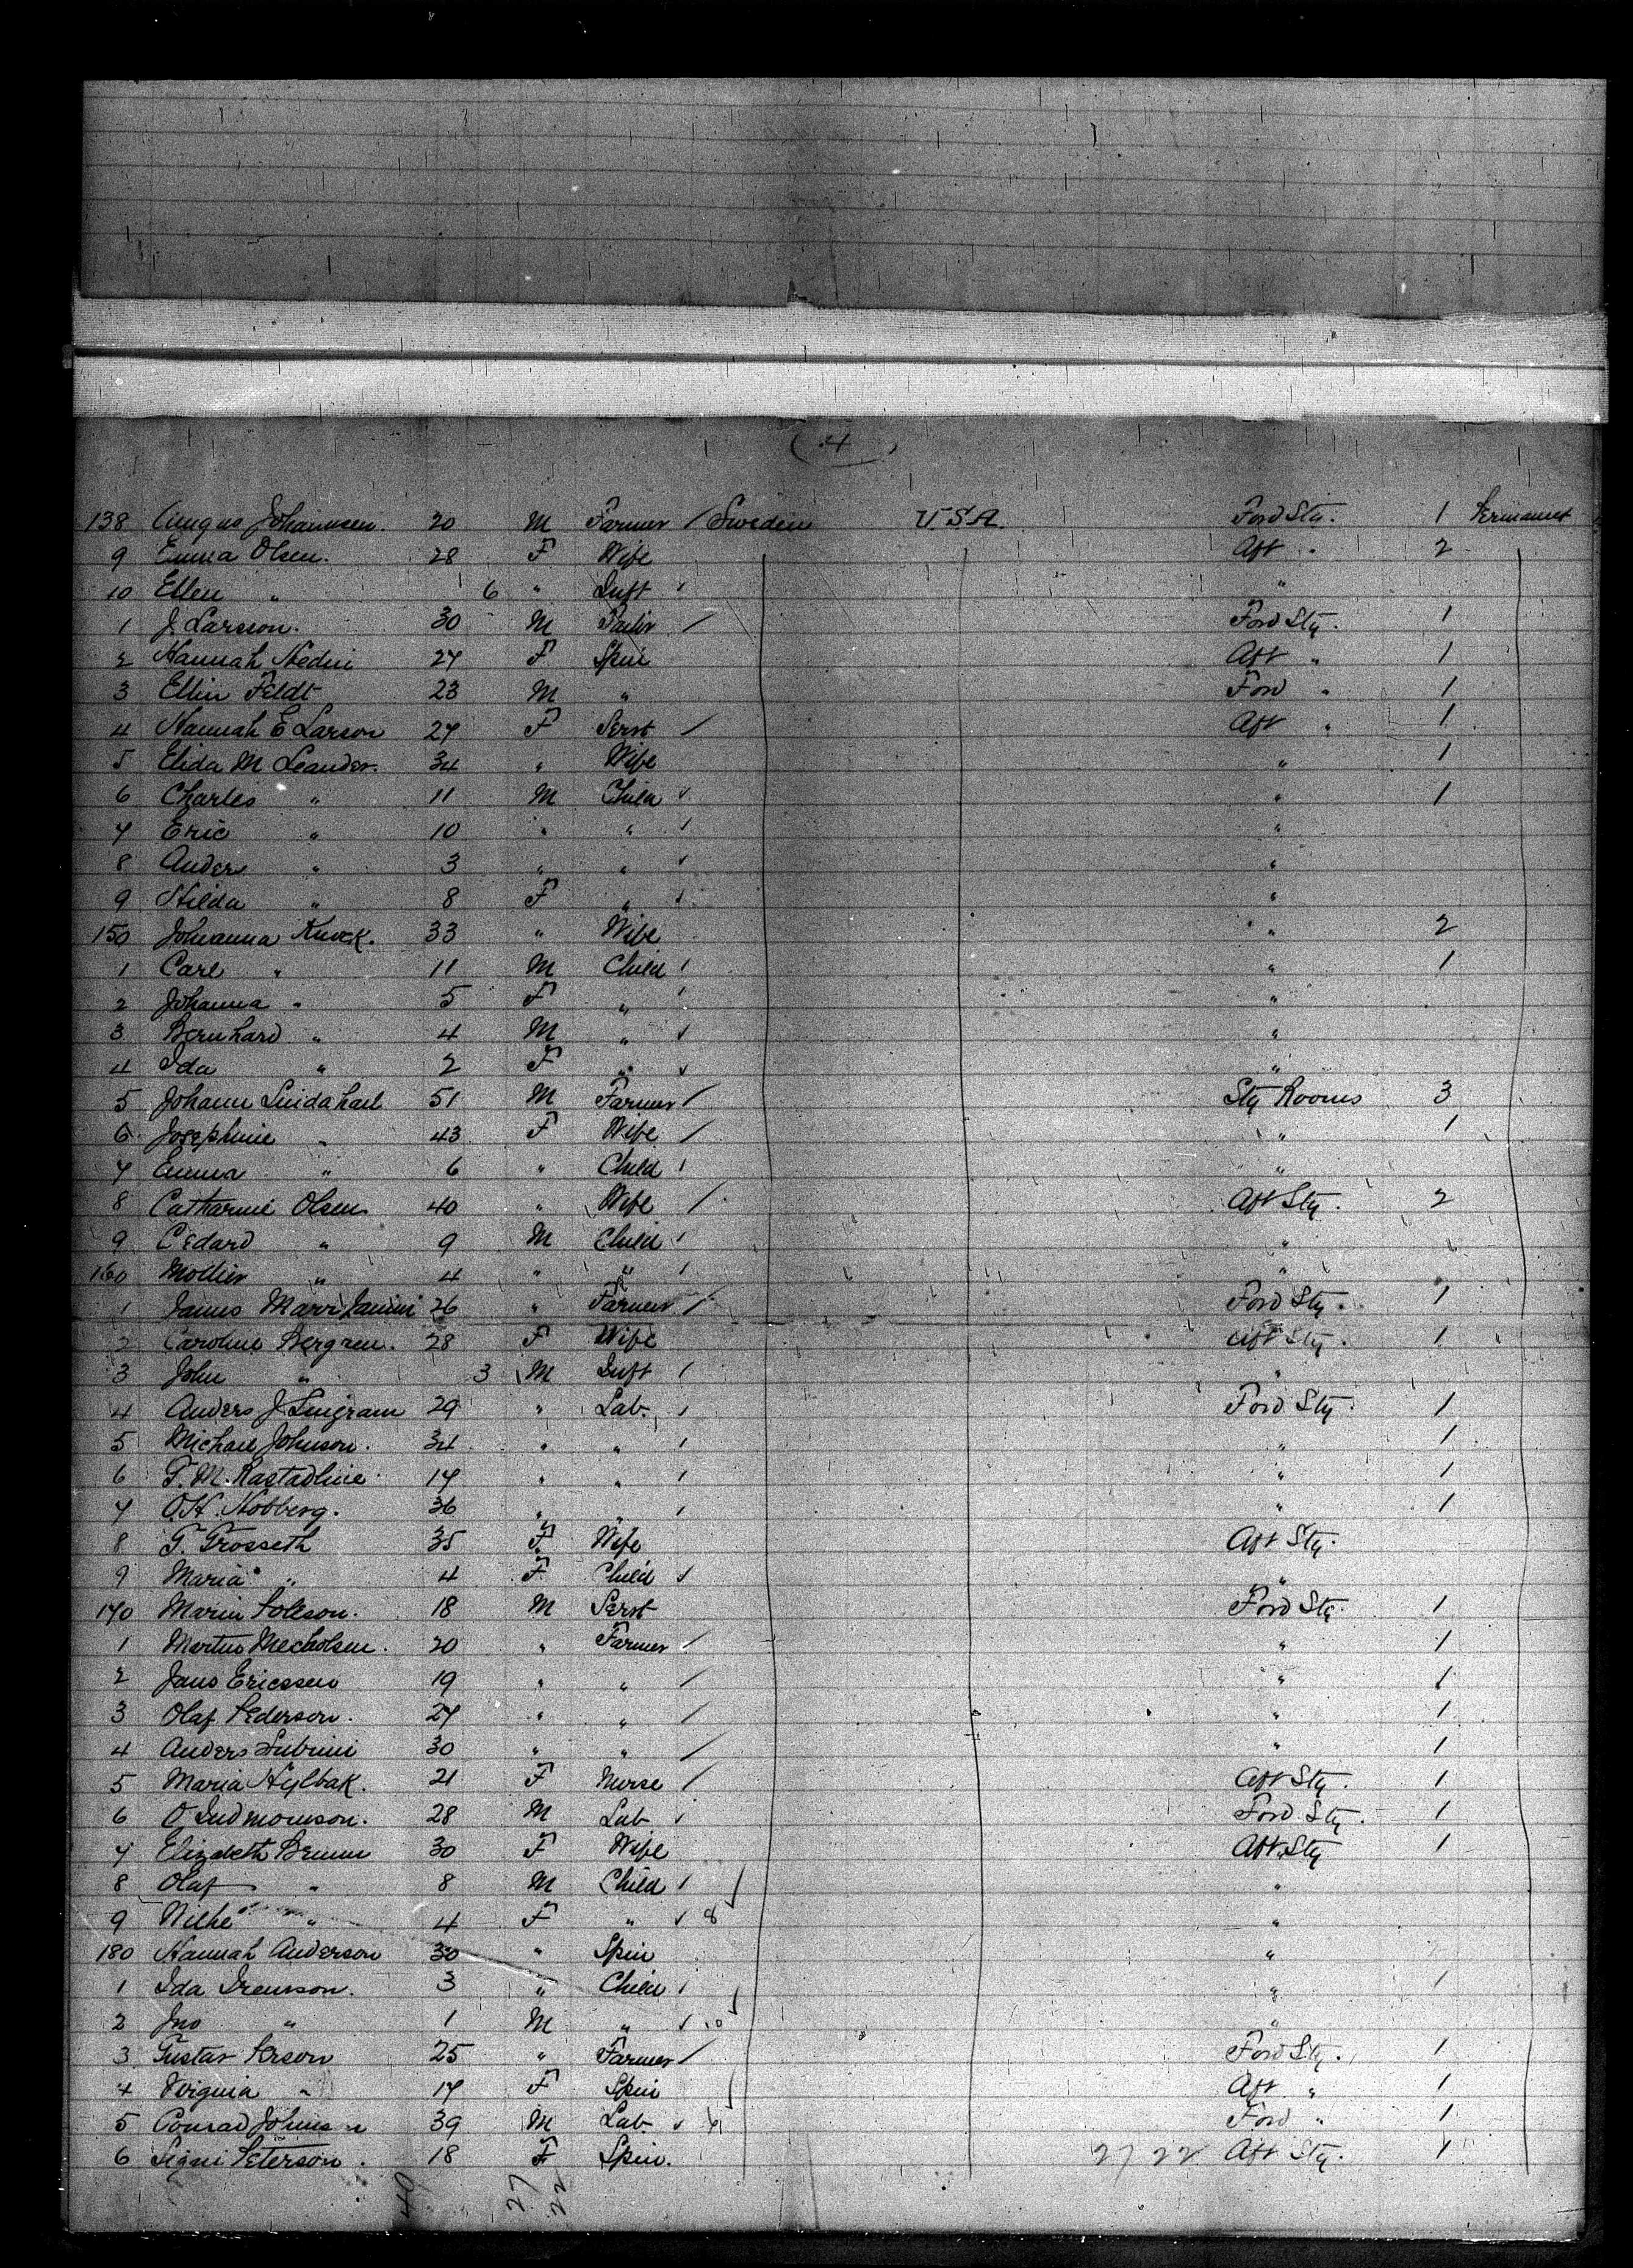 (4)
138 Augus Johannsen. 20 M Farmer / Sweden USA. Ford Stg. 1 Permanent
9 Emma Olsen. 28 F Wife Aft " 2
10 Ellen " 6 " Inft "
1 J. Larsson. 30 M Tailor / Ford Stg. 1
2 Hannah Hedin 27 F Spin Aft " 1
3 Ellin Feldt 23 M " Ford " 1
4 Hannah E Larson 27 F Servt / Aft " 1
5 Elida M Leander. 34 " Wife " 1
6 Charles " 11 M Child " 1
7 Eric " 10 " " "
8 Anders " 3 " " "
9 Hilda " 8 F " "
150 Johanna Knock. 33 " Wife " 2
1 Carl " 11 M Child " 1
2 Johanna " 5 F " "
3 Bernhard " 4 M " "
4 Ida " 2 F " "
5 Johann 51 M Farmer / Stg Rooms 3
6 Josephine " 43 F Wife / " 1
7 Emma " 6 " Child "
8 Catharine Olsen 40 " Wife / Aft Stg. 2
9 Edard " 9 M Child "
160 " 4 " " "
1 26 " Farmer / Ford Stg. 1
2 Caroline Bergren. 28 F Wife Aft Stg. 1
3 John " 3 M Inft "
4 Anders J 29 " Lab. Ford Stg. 1
5 Michael Johnson. 34 " " " 1
6 17 " " " 1
7 O.H. Hobberg. 36 " " " 1
8 T. Trosseth 35 F Wife Aft Stg.
9 Maria " 4 F Child "
170 Marin 18 M Servt Ford Stg. 1
1 20 " Farmer / " 1
2 Jans Ericssen 19 " " / " 1
3 Olaf Pederson. 27 " " / " 1
4 Anders 30 " " / " 1
5 Maria Hylbak. 21 F Nurse / Aft Stg. 1
6 O 28 M Lab Ford Stg. 1
7 Elizabeth 30 F Wife Aft Stg 1
8 Olaf " 8 M Child "
9 " 4 F " 8 "
180 Hannah Anderson 30 " Spin "
1 Ida 3 " Child " 1
2 Jno " 1 M " 10 "
3 Gustav Person 25 " Farmer / Ford Stg. 1
4 Virginia " 17 F Spin Aft " 1
5 Conrad 39 M Lab. Ford " 1
6 Signi Peterson. 18 F Spin. 27 22 Aft Stg. 1
40 27 22